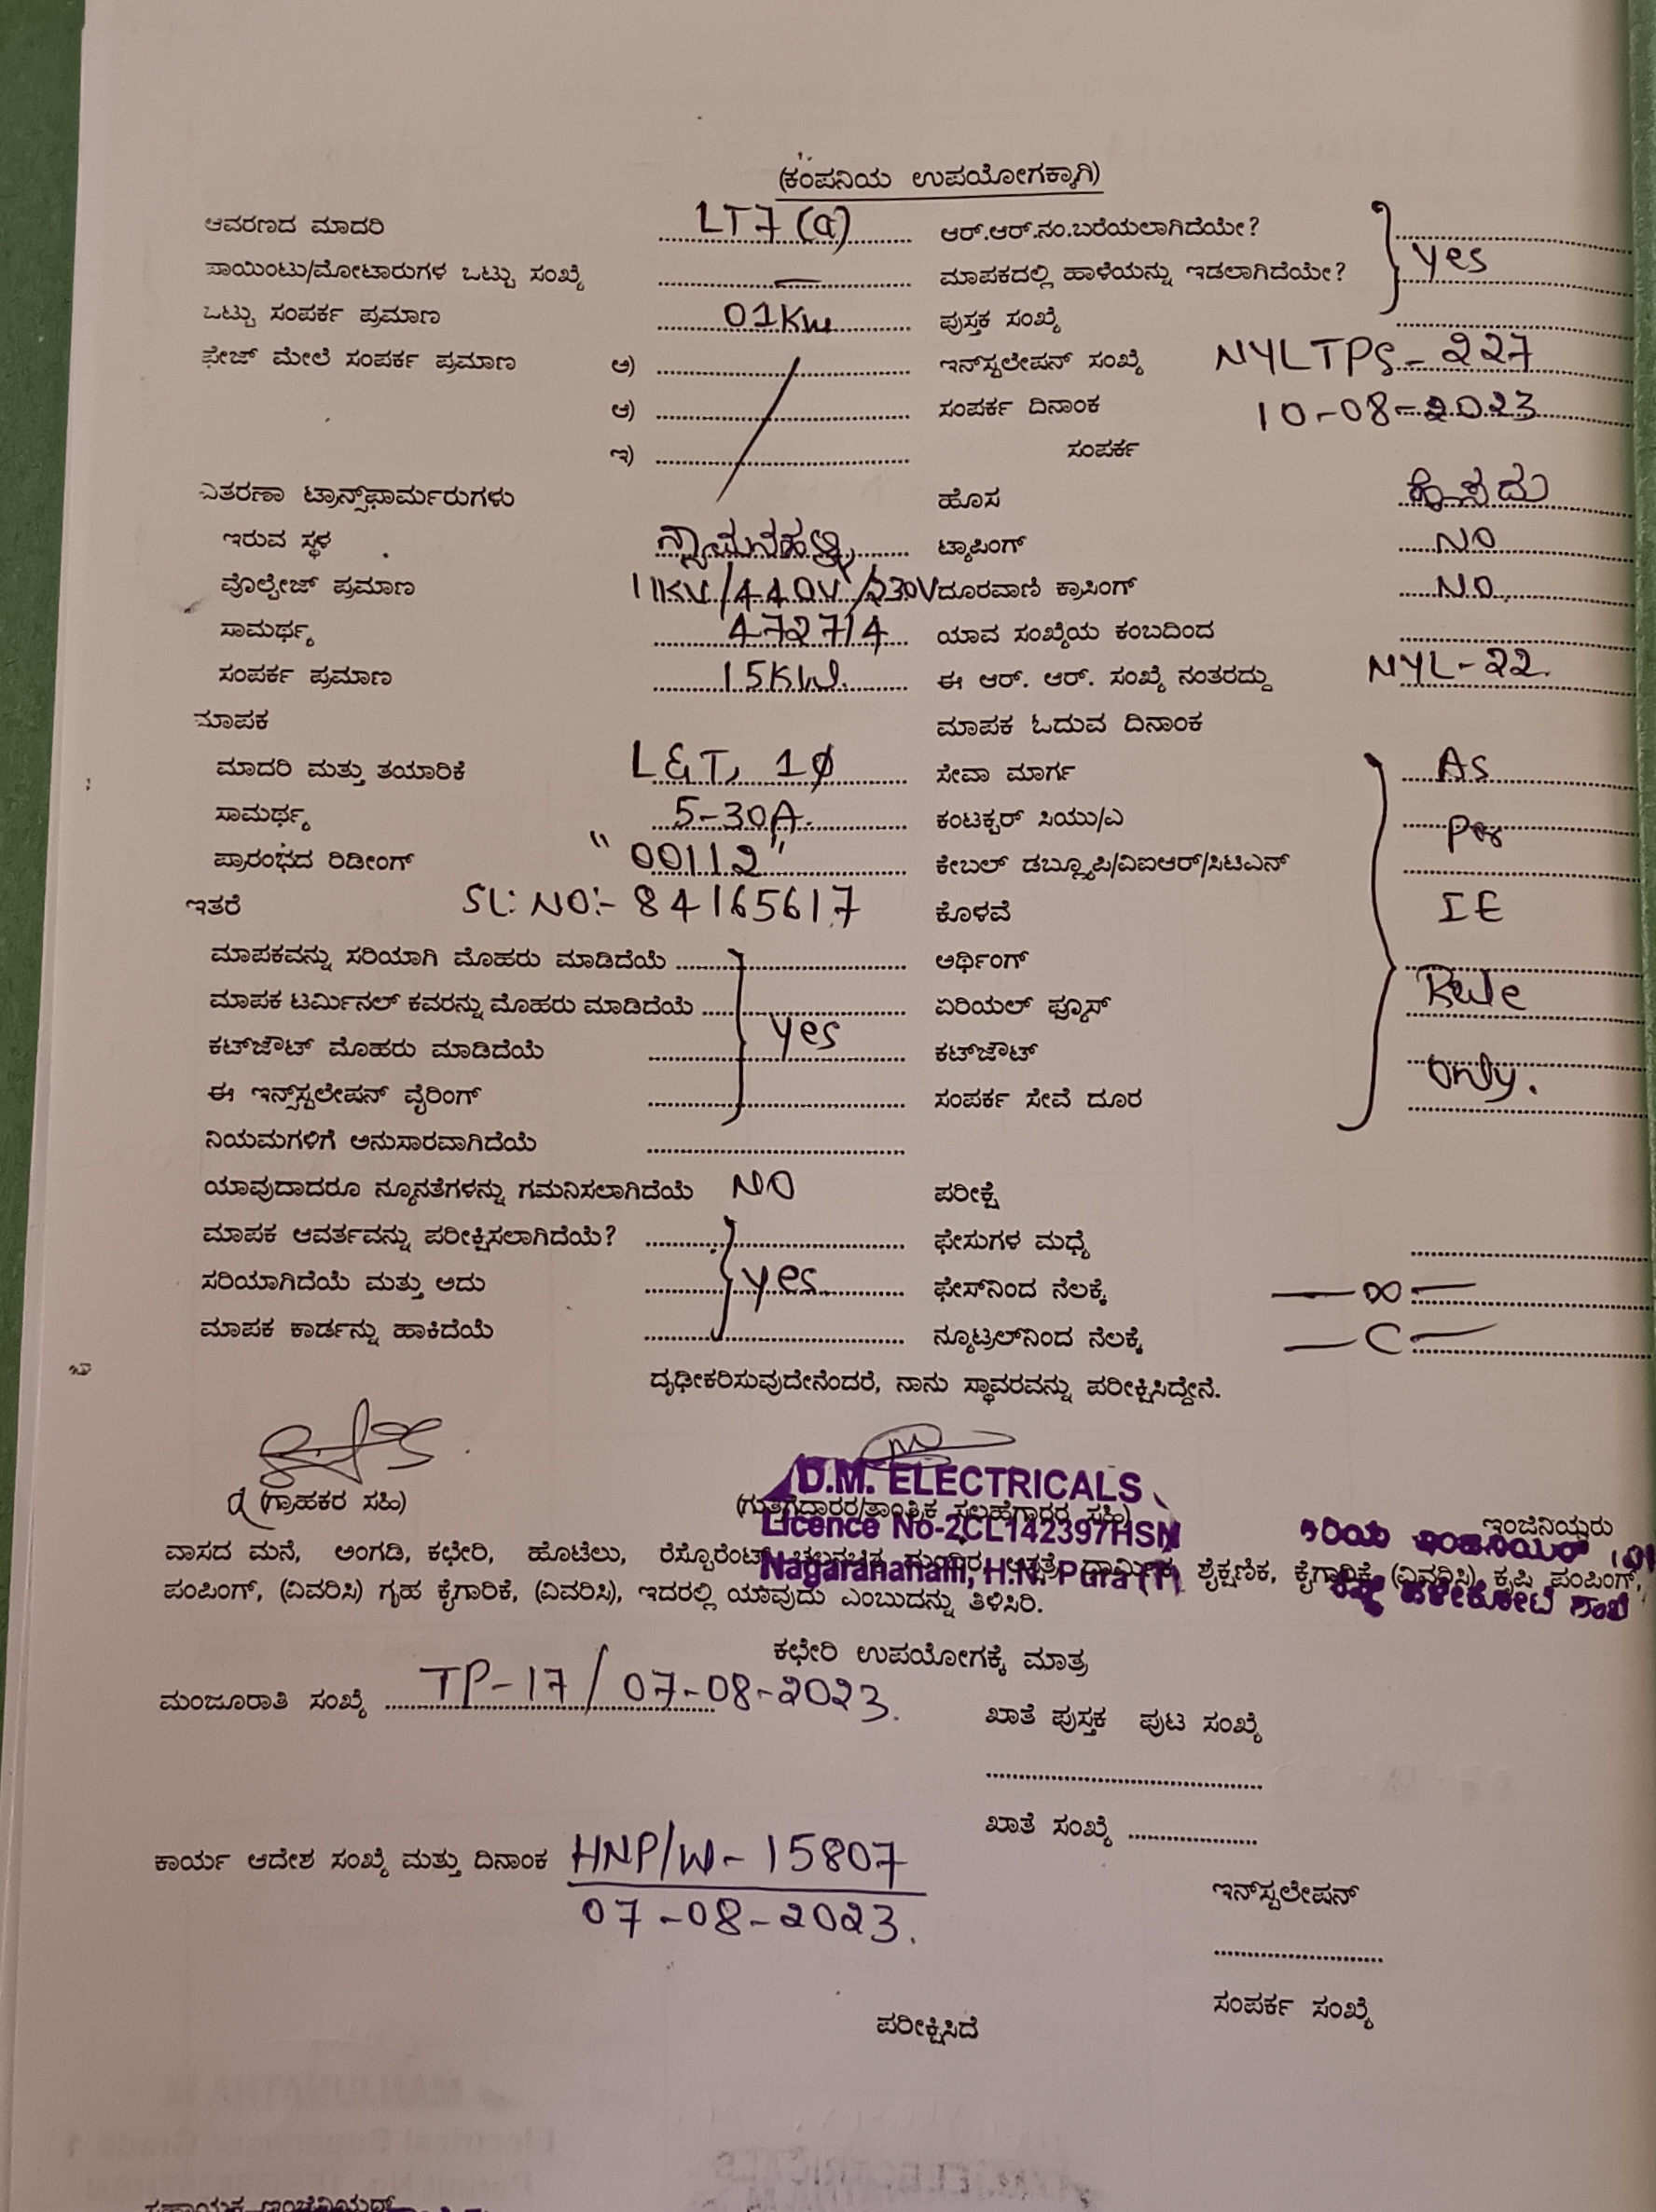 (ಕಂಪನಿಯ ಉಪಯೋಗಕ್ಕಾಗಿ)
ಆವರಣದ ಮಾದರಿ LT7 (a) ಆರ್.ಆರ್.ನಂ.ಬರೆಯಲಾಗಿದೆಯೇ?
ಪಾಯಿಂಟು/ಮೋಟಾರುಗಳ ಒಟ್ಟು ಸಂಖ್ಯೆ — ಮಾಪಕದಲ್ಲಿ ಹಾಳೆಯನ್ನು ಇಡಲಾಗಿದೆಯೇ? Yes
ಒಟ್ಟು ಸಂಪರ್ಕ ಪ್ರಮಾಣ 01Kw ಪುಸ್ತಕ ಸಂಖ್ಯೆ
ಫೇಜ್ ಮೇಲೆ ಸಂಪರ್ಕ ಪ್ರಮಾಣ ಅ) ಇನ್‌ಸ್ಟಲೇಷನ್ ಸಂಖ್ಯೆ NYLTPS-227
ಆ) ಸಂಪರ್ಕ ದಿನಾಂಕ 10-08-2023
ಇ) ಸಂಪರ್ಕ
ವಿತರಣಾ ಟ್ರಾನ್ಸ್‌ಫಾರ್ಮರುಗಳು ಹೊಸ ಹೊಸದು
ಇರುವ ಸ್ಥಳ ಟ್ಯಾಪಿಂಗ್ NO
ವೊಲ್ಟೇಜ್ ಪ್ರಮಾಣ 11KV/440V/230V ದೂರವಾಣಿ ಕ್ರಾಸಿಂಗ್ NO
ಸಾಮರ್ಥ್ಯ 472714 ಯಾವ ಸಂಖ್ಯೆಯ ಕಂಬದಿಂದ
ಸಂಪರ್ಕ ಪ್ರಮಾಣ 15KW. ಈ ಆರ್. ಆರ್. ಸಂಖ್ಯೆ ನಂತರದ್ದು NYL-22.
ಮಾಪಕ ಮಾಪಕ ಓದುವ ದಿನಾಂಕ
ಮಾದರಿ ಮತ್ತು ತಯಾರಿಕೆ L&T, 1ø ಸೇವಾ ಮಾರ್ಗ As
ಸಾಮರ್ಥ್ಯ 5-30A. ಕಂಟಕ್ಟರ್ ಸಿಯು/ಎ Per
ಪ್ರಾರಂಭದ ರಿಡೀಂಗ್ "00112" ಕೇಬಲ್ ಡಬ್ಲ್ಯೂಪಿ/ವಿಐಆರ್/ಸಿಟಿಎನ್
ಇತರೆ SL: NO:- 84165617 ಕೊಳವೆ IE
ಮಾಪಕವನ್ನು ಸರಿಯಾಗಿ ಮೊಹರು ಮಾಡಿದೆಯೆ ಅರ್ಥಿಂಗ್
ಮಾಪಕ ಟರ್ಮಿನಲ್ ಕವರನ್ನು ಮೊಹರು ಮಾಡಿದೆಯೆ ಏರಿಯಲ್ ಫ್ಯೂಸ್ Rule
ಕಟ್‌ಜೌಟ್ ಮೊಹರು ಮಾಡಿದೆಯೆ Yes ಕಟ್‌ಜೌಟ್
ಈ ಇನ್ಸ್‌ಸ್ಟಲೇಷನ್ ವೈರಿಂಗ್ ಸಂಪರ್ಕ ಸೇವೆ ದೂರ only.
ನಿಯಮಗಳಿಗೆ ಅನುಸಾರವಾಗಿದೆಯೆ
ಯಾವುದಾದರೂ ನ್ಯೂನತೆಗಳನ್ನು ಗಮನಿಸಲಾಗಿದೆಯೆ NO ಪರೀಕ್ಷೆ
ಮಾಪಕ ಆವರ್ತವನ್ನು ಪರೀಕ್ಷಿಸಲಾಗಿದೆಯೆ? ಫೇಸುಗಳ ಮಧ್ಯೆ
ಸರಿಯಾಗಿದೆಯೆ ಮತ್ತು ಅದು Yes ಫೇಸ್‌ನಿಂದ ನೆಲಕ್ಕೆ —∞—
ಮಾಪಕ ಕಾರ್ಡನ್ನು ಹಾಕಿದೆಯೆ ನ್ಯೂಟ್ರಲ್‌ನಿಂದ ನೆಲಕ್ಕೆ —C—
ದೃಢೀಕರಿಸುವುದೇನೆಂದರೆ, ನಾನು ಸ್ಥಾವರವನ್ನು ಪರೀಕ್ಷಿಸಿದ್ದೇನೆ.
D.M. ELECTRICALS
(ಗ್ರಾಹಕರ ಸಹಿ) (ಗುತ್ತಿಗೆದಾರರ/ತಾಂತ್ರಿಕ ಸಲಹೆಗಾರರ ಸಹಿ)
Licence No-2CL142397HSN ಇಂಜಿನಿಯರು
ಕಿರಿಯ ಇಂಜಿನಿಯರ್
ವಾಸದ ಮನೆ, ಅಂಗಡಿ, ಕಛೇರಿ, ಹೊಟೆಲು, ರೆಸ್ಟೊರೆಂಟ್, ಚಲನಚಿತ್ರ ಮಂದಿರ, ಆಸ್ಪತ್ರೆ, ಧಾರ್ಮಿಕ, ಶೈಕ್ಷಣಿಕ, ಕೈಗಾರಿಕೆ, (ವಿವರಿಸಿ), ಕೃಷಿ ಪಂಪಿಂಗ್,
Nagaranahalli, H.N. Pura (T)
ಪಂಪಿಂಗ್, (ವಿವರಿಸಿ) ಗೃಹ ಕೈಗಾರಿಕೆ, (ವಿವರಿಸಿ), ಇದರಲ್ಲಿ ಯಾವುದು ಎಂಬುದನ್ನು ತಿಳಿಸಿರಿ.
ಹಳೇಕೋಟೆ ಶಾಖೆ
ಕಛೇರಿ ಉಪಯೋಗಕ್ಕೆ ಮಾತ್ರ
ಮಂಜೂರಾತಿ ಸಂಖ್ಯೆ TP-17/07-08-2023. ಖಾತೆ ಪುಸ್ತಕ ಪುಟ ಸಂಖ್ಯೆ
ಖಾತೆ ಸಂಖ್ಯೆ
ಕಾರ್ಯ ಆದೇಶ ಸಂಖ್ಯೆ ಮತ್ತು ದಿನಾಂಕ HNP/W- 15807
ಇನ್‌ಸ್ಟಲೇಷನ್
07-08-2023.
ಸಂಪರ್ಕ ಸಂಖ್ಯೆ
ಪರೀಕ್ಷಿಸಿದೆ
ಸಹಾಯಕ ಇಂಜಿನಿಯರ್